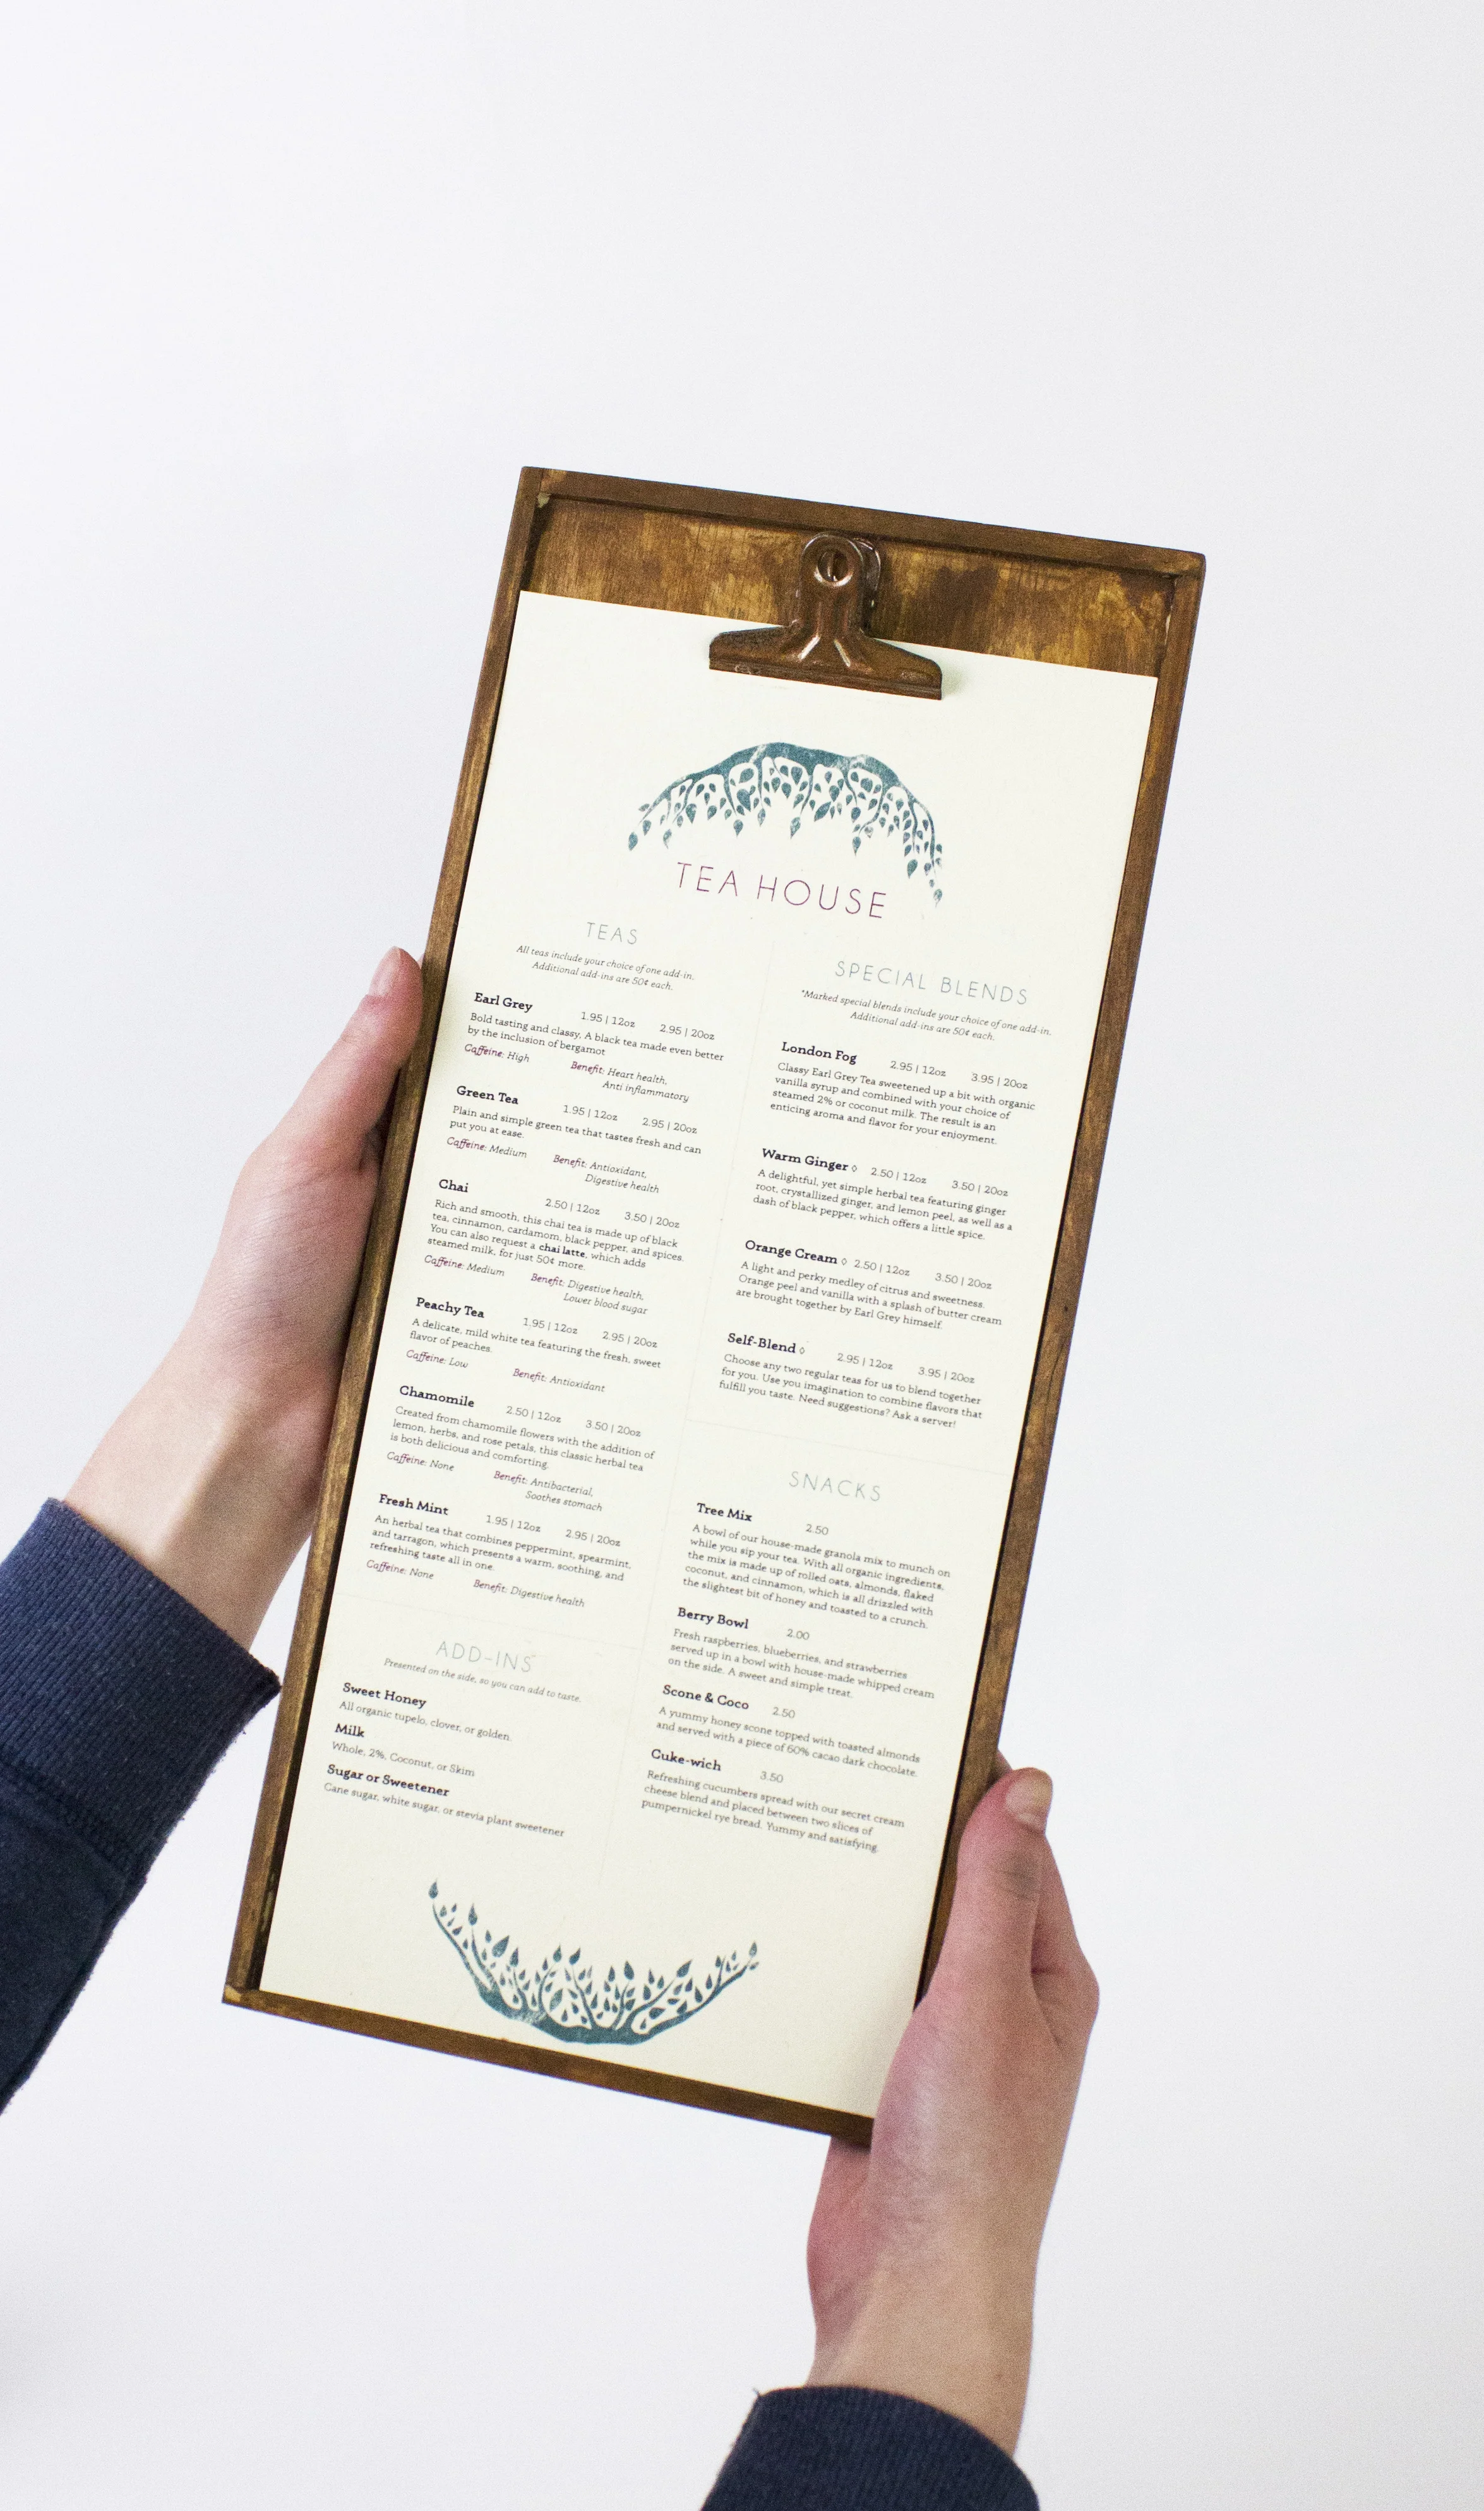 TEA HOUSE
TEAS
All teas include your choice of one add-in.
Additional add-ins are 50¢ each.
Earl Grey 1.95 | 12oz 2.95 | 20oz
Bold tasting and classy, A black tea made even better
by the inclusion of bergamot
Caffeine: High Benefit: Heart health,
Anti inflammatory
Green Tea 1.95 | 12oz 2.95 | 20oz
Plain and simple green tea that tastes fresh and can
put you at ease.
Caffeine: Medium Benefit: Antioxidant,
Digestive health
Chai 2.50 | 12oz 3.50 | 20oz
Rich and smooth, this chai tea is made up of black
tea, cinnamon, cardamom, black pepper, and spices.
You can also request a chai latte, which adds
steamed milk, for just 50¢ more.
Caffeine: Medium Benefit: Digestive health,
Lower blood sugar
Peachy Tea 1.95 | 12oz 2.95 | 20oz
A delicate, mild white tea featuring the fresh, sweet
flavor of peaches.
Caffeine: Low Benefit: Antioxidant
Chamomile 2.50 | 12oz 3.50 | 20oz
Created from chamomile flowers with the addition of
lemon, herbs, and rose petals, this classic herbal tea
is both delicious and comforting.
Caffeine: None Benefit: Antibacterial,
Soothes stomach
Fresh Mint 1.95 | 12oz 2.95 | 20oz
An herbal tea that combines peppermint, spearmint,
and tarragon, which presents a warm, soothing, and
refreshing taste all in one.
Caffeine: None Benefit: Digestive health
ADD-INS
Presented on the side, so you can add to taste.
Sweet Honey
All organic tupelo, clover, or golden.
Milk
Whole, 2%, Coconut, or Skim
Sugar or Sweetener
Cane sugar, white sugar, or stevia plant sweetener
SPECIAL BLENDS
*Marked special blends include your choice of one add-in.
Additional add-ins are 50¢ each.
London Fog 2.95 | 12oz 3.95 | 20oz
Classy Earl Grey Tea sweetened up a bit with organic
vanilla syrup and combined with your choice of
steamed 2% or coconut milk. The result is an
enticing aroma and flavor for your enjoyment.
Warm Ginger ◊ 2.50 | 12oz 3.50 | 20oz
A delightful, yet simple herbal tea featuring ginger
root, crystallized ginger, and lemon peel, as well as a
dash of black pepper, which offers a little spice.
Orange Cream ◊ 2.50 | 12oz 3.50 | 20oz
A light and perky medley of citrus and sweetness.
Orange peel and vanilla with a splash of butter cream
are brought together by Earl Grey himself.
Self-Blend ◊ 2.95 | 12oz 3.95 | 20oz
Choose any two regular teas for us to blend together
for you. Use you imagination to combine flavors that
fulfill you taste. Need suggestions? Ask a server!
SNACKS
Tree Mix 2.50
A bowl of our house-made granola mix to munch on
while you sip your tea. With all organic ingredients,
the mix is made up of rolled oats, almonds, flaked
coconut, and cinnamon, which is all drizzled with
the slightest bit of honey and toasted to a crunch.
Berry Bowl 2.00
Fresh raspberries, blueberries, and strawberries
served up in a bowl with house-made whipped cream
on the side. A sweet and simple treat.
Scone & Coco 2.50
A yummy honey scone topped with toasted almonds
and served with a piece of 60% cacao dark chocolate.
Cuke-wich 3.50
Refreshing cucumbers spread with our secret cream
cheese blend and placed between two slices of
pumpernickel rye bread. Yummy and satisfying.